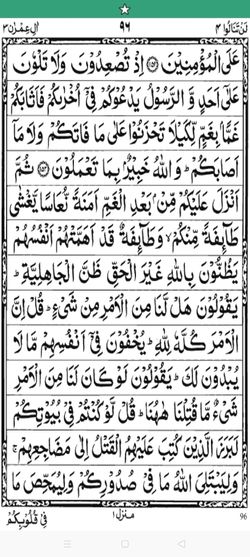 لَنْ تَنَالُوا ۴ ۹۶ اٰلِ عِمْرٰن ۳
عَلَى الْمُؤْمِنِيْنَ ﴿۱۵۲﴾ اِذْ تُصْعِدُوْنَ وَلَا تَلْوٗنَ
عَلٰٓى اَحَدٍ وَّ الرَّسُوْلُ يَدْعُوْكُمْ فِيْٓ اُخْرٰىكُمْ فَاَثَابَكُمْ
غَمًّۢا بِغَمٍّ لِّكَيْلَا تَحْزَنُوْا عَلٰى مَا فَاتَكُمْ وَلَا مَآ
اَصَابَكُمْ ؕ وَاللّٰهُ خَبِيْرٌۢ بِمَا تَعْمَلُوْنَ ﴿۱۵۳﴾ ثُمَّ
اَنْزَلَ عَلَيْكُمْ مِّنْۢ بَعْدِ الْغَمِّ اَمَنَةً نُّعَاسًا يَّغْشٰى
طَآئِفَةً مِّنْكُمْ ۙ وَطَآئِفَةٌ قَدْ اَهَمَّتْهُمْ اَنْفُسُهُمْ
يَظُنُّوْنَ بِاللّٰهِ غَيْرَ الْحَقِّ ظَنَّ الْجَاهِلِيَّةِ ؕ
يَقُوْلُوْنَ هَلْ لَّنَا مِنَ الْاَمْرِ مِنْ شَيْءٍ ؕ قُلْ اِنَّ
الْاَمْرَ كُلَّهٗ لِلّٰهِ ؕ يُخْفُوْنَ فِيْٓ اَنْفُسِهِمْ مَّا لَا
يُبْدُوْنَ لَكَ ؕ يَقُوْلُوْنَ لَوْ كَانَ لَنَا مِنَ الْاَمْرِ
شَيْءٌ مَّا قُتِلْنَا هٰهُنَا ؕ قُلْ لَّوْ كُنْتُمْ فِيْ بُيُوْتِكُمْ
لَبَرَزَ الَّذِيْنَ كُتِبَ عَلَيْهِمُ الْقَتْلُ اِلٰى مَضَاجِعِهِمْ ۚ
وَلِيَبْتَلِيَ اللّٰهُ مَا فِيْ صُدُوْرِكُمْ وَلِيُمَحِّصَ مَا
96 منزل ۱ فِيْ قُلُوْبِكُمْ